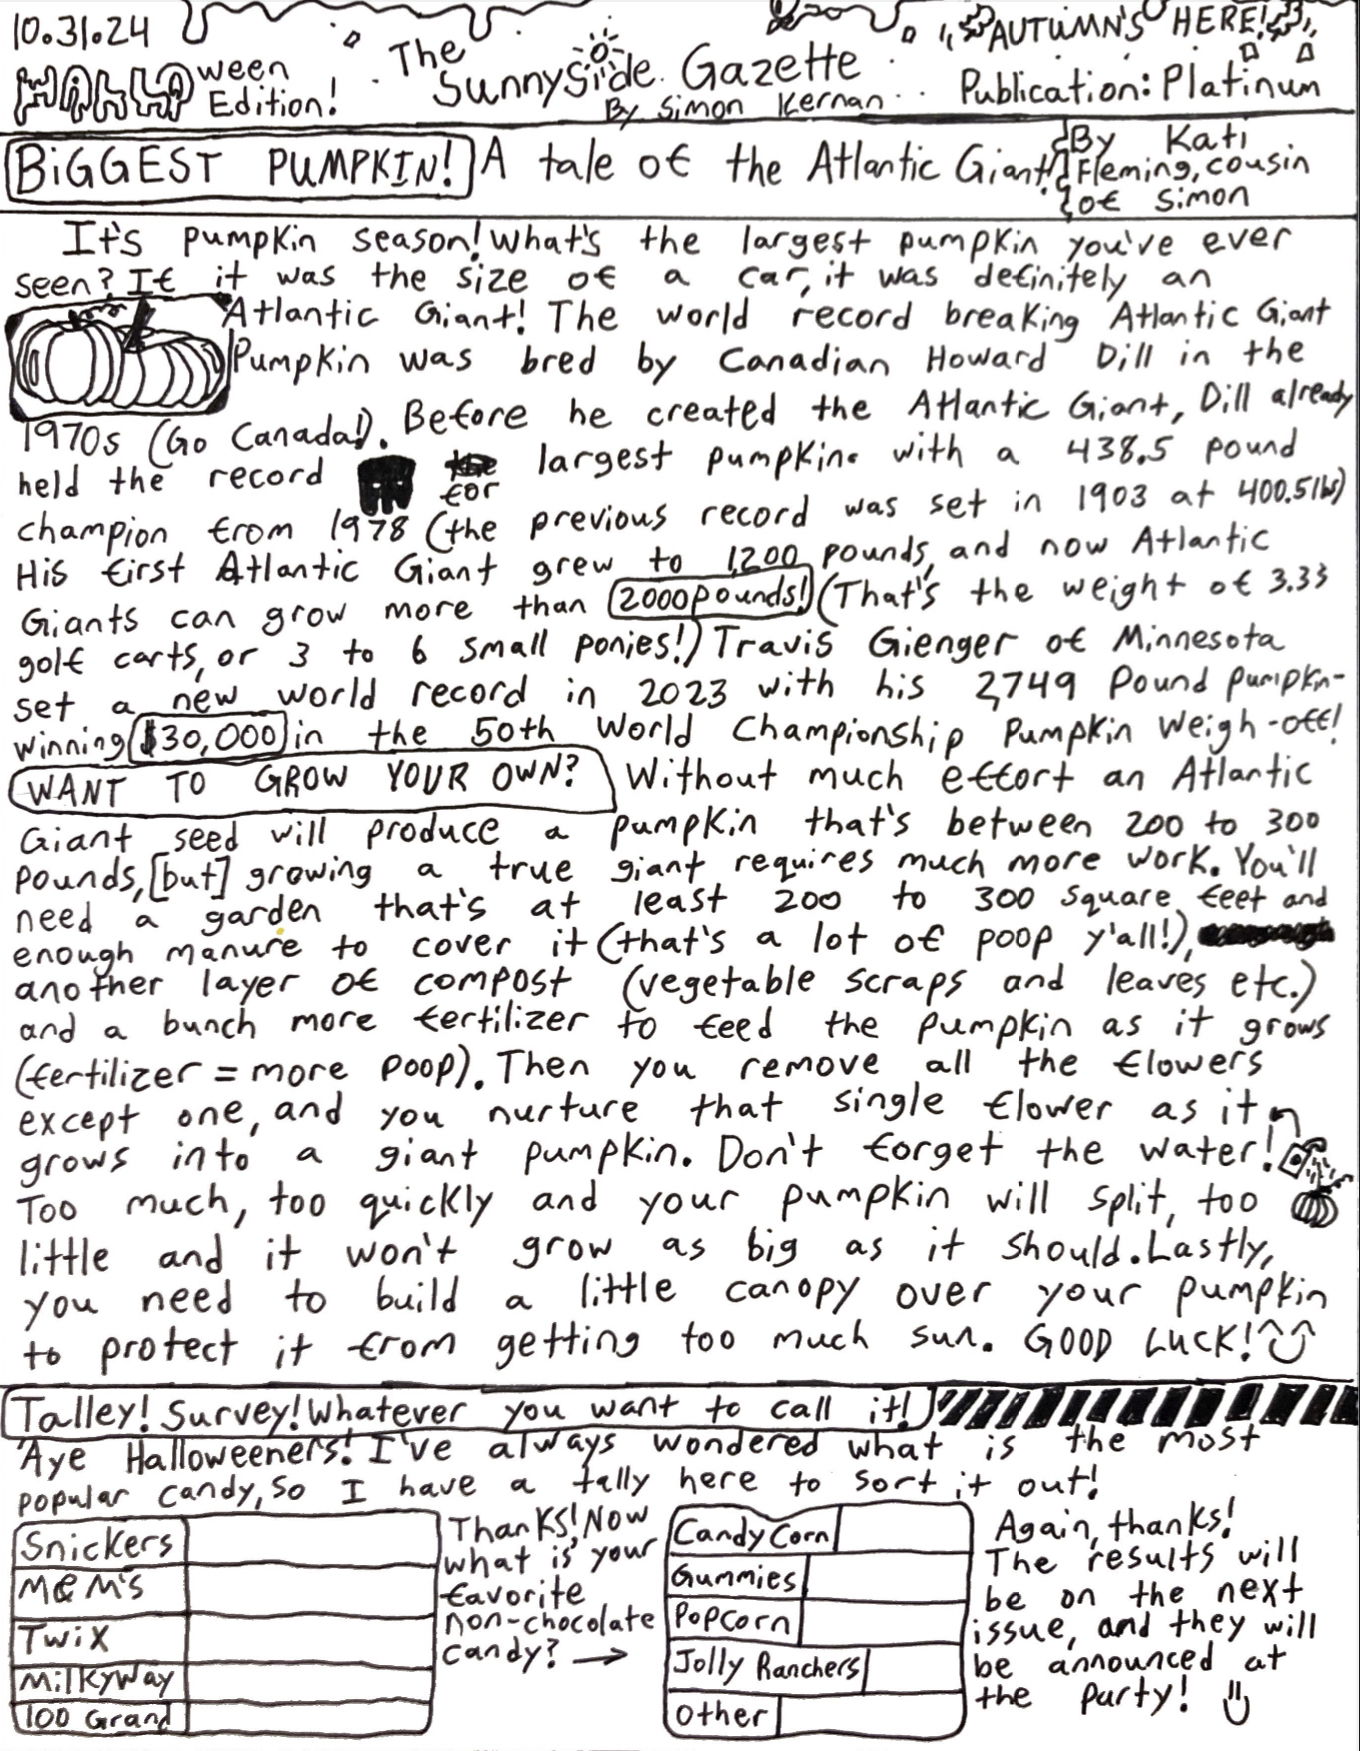 10.31.24
HALLOween
Edition!
The
SunnySide Gazette
By Simon Kernan
"AUTUMN'S HERE!"
Publication: Platinum
BiGGEST PUMPKIN! A tale of the Atlantic Giant!
By Kati
Fleming, cousin
of Simon
It's pumpkin season! What's the largest pumpkin you've ever
seen? If it was the size of a car, it was definitely an
Atlantic Giant! The world record breaking Atlantic Giant
Pumpkin was bred by Canadian Howard Dill in the
1970s (Go Canada!). Before he created the Atlantic Giant, Dill already
held the record for largest pumpkin. with a 438.5 pound
champion from 1978 (the previous record was set in 1903 at 400.5 lbs)
His first Atlantic Giant grew to 1,200 pounds, and now Atlantic
Giants can grow more than 2000 pounds! (That's the weight of 3.33
golf carts, or 3 to 6 small ponies!) Travis Gienger of Minnesota
set a new world record in 2023 with his 2,749 Pound pumpkin-
winning $30,000 in the 50th World Championship Pumpkin Weigh-off!
WANT TO GROW YOUR OWN? Without much effort an Atlantic
Giant seed will produce a pumpkin that's between 200 to 300
pounds, [but] growing a true giant requires much more work. You'll
need a garden that's at least 200 to 300 square feet and
enough manure to cover it (that's a lot of poop y'all!),
another layer of compost (vegetable scraps and leaves etc.)
and a bunch more fertilizer to feed the pumpkin as it grows
(fertilizer = more poop). Then you remove all the flowers
except one, and you nurture that single flower as it
grows into a giant pumpkin. Don't forget the water!
Too much, too quickly and your pumpkin will split, too
little and it won't grow as big as it should. Lastly,
you need to build a little canopy over your pumpkin
to protect it from getting too much sun. GOOD LUCK!
Talley! Survey! Whatever you want to call it!
'Aye Halloweeners! I've always wondered what is the most
popular candy, so I have a tally here to sort it out!
Snickers
M&M's
Twix
MilkyWay
100 Grand
Thanks! Now
what is your
favorite
non-chocolate
candy? →
Candy Corn
Gummies
Popcorn
Jolly Ranchers
Other
Again, thanks!
The results will
be on the next
issue, and they will
be announced at
the party!